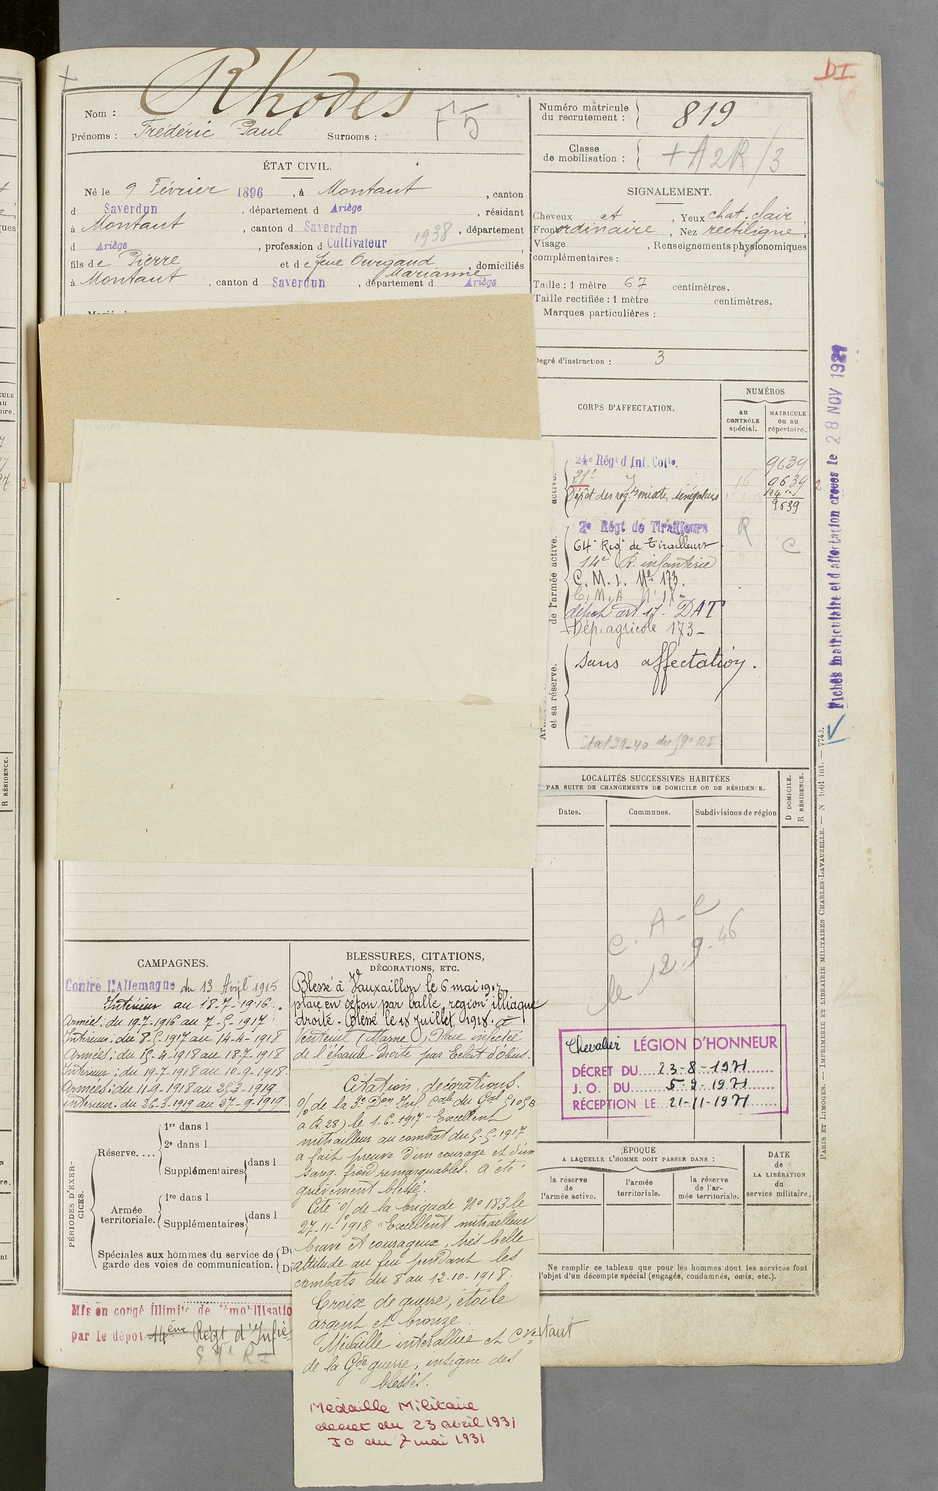 Rhodes
DI
Nom :
Prénoms : Frédéric Paul Surnoms :
F5
Numéro matricule du recrutement : 819
Classe de mobilisation :
ÉTAT CIVIL.
Né le 9 Février 1896, à Montaut, canton
d Saverdun, département d Ariège, résidant
à Montaut, canton d Saverdun, département
d Ariège, profession d Cultivateur 1938
fils de Pierre et de feue Marianne, domiciliés
à Montaut, canton d Saverdun, département d Ariège
SIGNALEMENT.
Cheveux cht, Yeux chat. clair
Front ordinaire, Nez rectiligne,
Visage, Renseignements physionomiques
complémentaires :
Taille : 1 mètre 67 centimètres.
Taille rectifiée : 1 mètre centimètres.
Marques particulières :
Degré d'instruction : 3
CORPS D'AFFECTATION.
NUMÉROS
au CONTRÔLE spécial.
MATRICULE ou au répertoire.
24e Régt d'Inf. Colle. 9639
9634
Dépôt des rég. mixte, sénégalais
9539
2e Régt de Tirailleurs R
64e Régt de Tirailleurs C
14e R. infanterie
C. M. I. N° 173.
C. M. A N° IX
dépôt art 17. DAT
Dép. agricole 173
sans affectation.
de l'armée active.
et sa réserve.
Fiches matriculaire et d'affectation créées le 28 NOV 1929
LOCALITÉS SUCCESSIVES HABITÉES
PAR SUITE DE CHANGEMENTS DE DOMICILE OU DE RÉSIDENCE.
Dates.
Communes.
Subdivisions de région
D DOMICILE.
R RÉSIDENCE.
C. A-C
le 12.9.46
CAMPAGNES.
Contre l'Allemagne du 13 Avril 1915
Intérieur au 18-7-1916.
Armées. du 19.7-1916 au 7-5-1917
Intérieur: du 8-5.1917 au 14-4-1918
Armées: du 15.4-1918 au 18.7-1918
Intérieur: du 19-7-1918 au 10-9-1918
Armées: du 11-9-1918 au 25-3-1919
Intérieur. du 26-3-1919 au 27-9-1919
BLESSURES, CITATIONS,
DÉCORATIONS, ETC.
Blessé à Vauxaillon le 6 mai 1917
plaie en séton par balle, région illiaque
droite - Blessé le 18 Juillet 1918. à
Venteuil (Marne), Plaie infectée
de l'épaule droite par Eclat d'obus.
Citation, décorations.
à R.28) le 1-6-1917 "Excellent
mitrailleur au combat du 5-5-1917
a fait preuve d'un courage et d'un
sang froid remarquables. a été
grièvement blessé.
Cité O/ de la brigade N° 183 le
27-11-1918 "Excellent mitrailleur
brave et courageux, très belle
attitude au feu pendant les
combats du 8 au 12-10-1918.
Croix de guerre, étoile
argent et bronze.
Médaille interalliée et
de la Gde guerre, insigne des
blessés.
Médaille Militaire
décret du 23 avril 1931
JO du 7 mai 1931
Chevalier LÉGION D'HONNEUR
DÉCRET DU 23-8-1971
J. O. DU 5-9-1971
RÉCEPTION LE 21-11-1971
PÉRIODES D'EXERCICES.
Réserve....
1re dans l
2e dans l
Supplémentaires dans l
Armée territoriale.
1re dans l
Supplémentaires dans l
Spéciales aux hommes du service de
garde des voies de communication.
ÉPOQUE
A LAQUELLE L'HOMME DOIT PASSER DANS :
la réserve de l'armée active.
l'armée territoriale.
la réserve de l'armée territoriale.
DATE DE LA LIBÉRATION du service militaire.
Ne remplir ce tableau que pour les hommes dont les services font
l'objet d'un décompte spécial (engagés, condamnés, omis, etc.).
Mis en congé illimité de démobilisatio
par le dépôt 14ème Régt d'Infie
59e R I
PARIS ET LIMOGES. — IMPRIMERIE ET LIBRAIRIE MILITAIRES CHARLES-LAVAUZELLE.